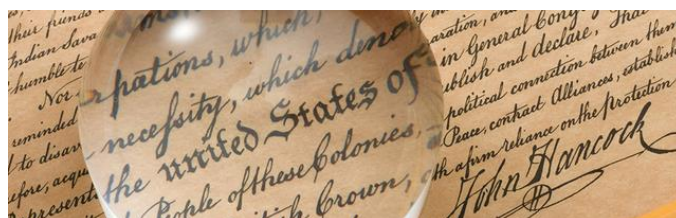 their friends
Indian Sava
humble to
Nor
reminded
to disav
efore, acqu
Represent
which,
pations, which
necefsity, which deno
the united States of
People of these Colonies,
Crown,
aration, and
in General Cong
ublish and declare, That
political connection between them
Peace, contract Alliances, establish
th a firm reliance on the Protection
John Hancock